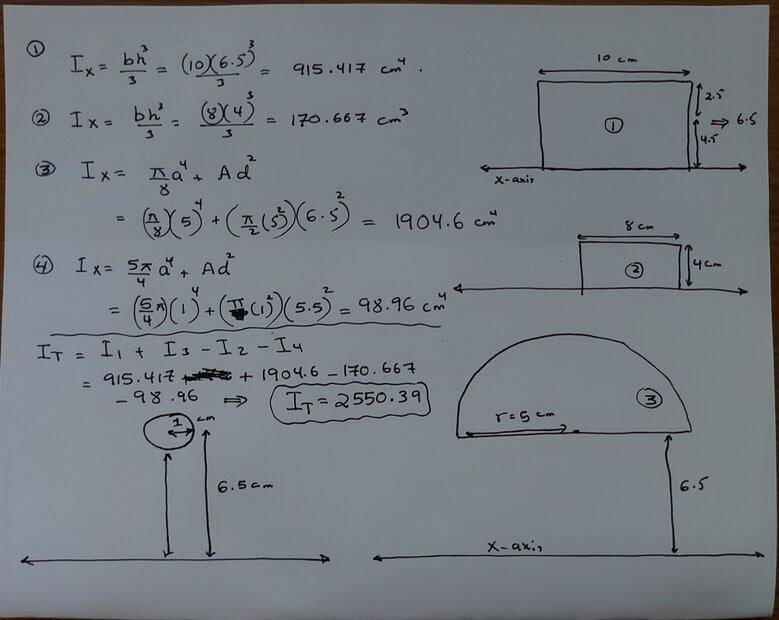 ① Ix = bh³/3 = (10)(6.5)³/3 = 915.417 cm⁴.
② Ix = bh³/3 = (8)(4)³/3 = 170.667 cm³
③ Ix = π/8 a⁴ + Ad²
= (π/8)(5)⁴ + (π/2(5²))(6.5)² = 1904.6 cm⁴
④ Ix = 5π/4 a⁴ + Ad²
= (5/4 π)(1)⁴ + (π(1)²)(5.5)² = 98.96 cm⁴
IT = I1 + I3 - I2 - I4
= 915.417 + 1904.6 - 170.667
- 98.96 ⇒ IT = 2550.39
10 cm
①
2.5
4.5
⇒ 6.5
x-axis
8 cm
②
4 cm
1 cm
6.5 cm
③
r = 5 cm
6.5
x-axis